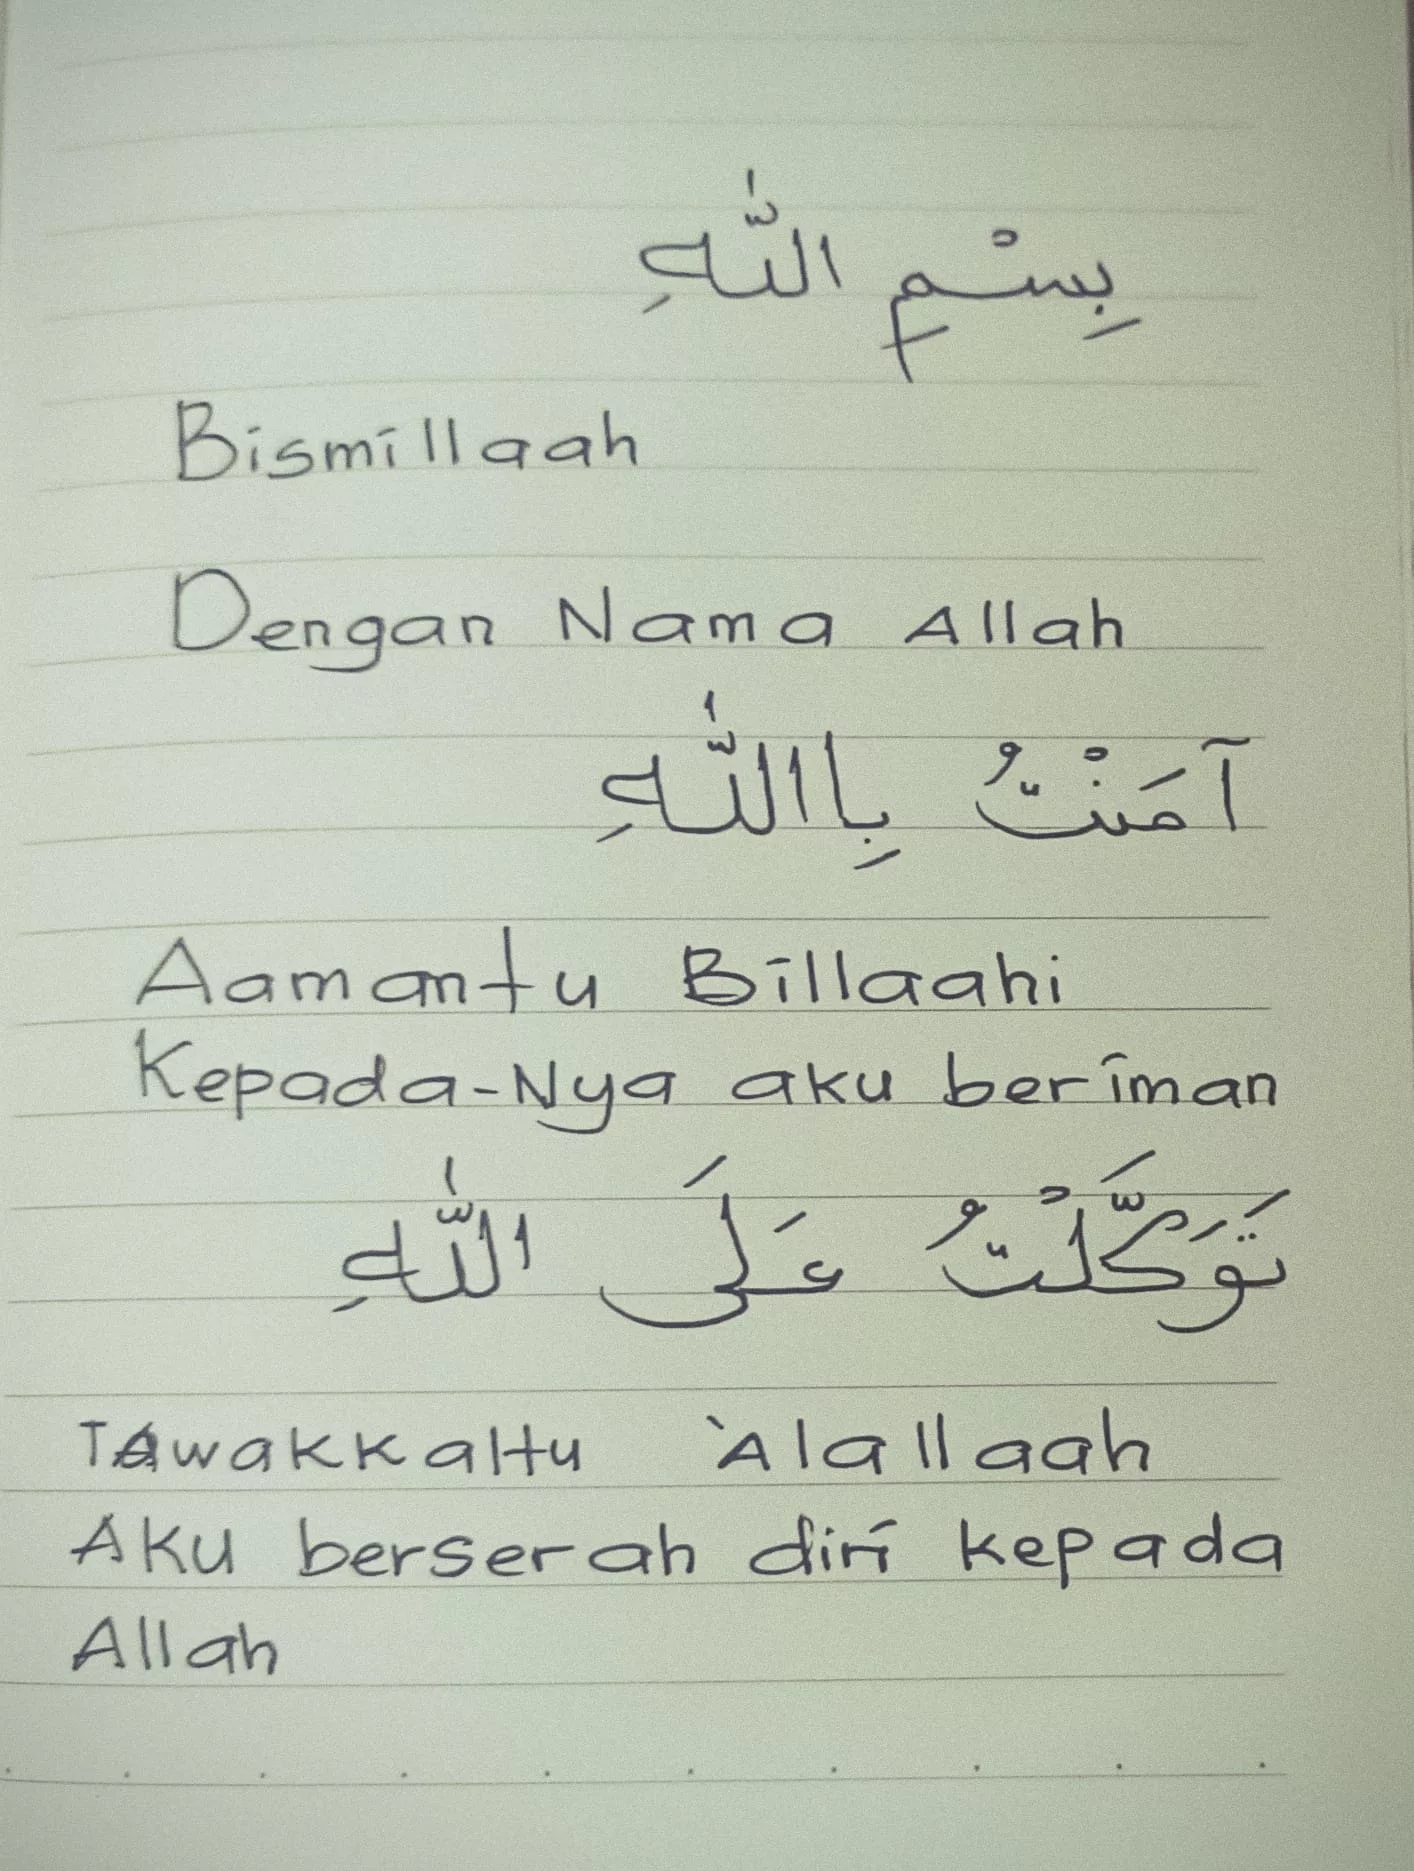 بِسْمِ اللّٰهِ
Bismillaah
Dengan Nama Allah
آمَنْتُ بِااللّٰهِ
Aamantu Billaahi
Kepada-Nya aku beriman
تَوَكَّلْتُ عَلَىَ اللّٰهِ
Tawakkaltu `Alallaah
Aku berserah diri kepada
Allah